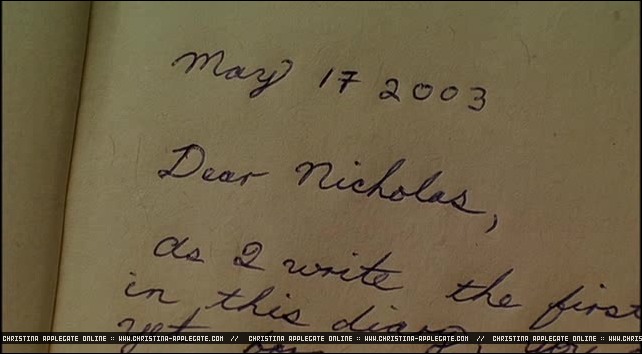 May 17 2003
Dear Nicholas,
As I write the first
in this diary,
yet
CHRISTINA APPLEGATE ONLINE :: WWW.CHRISTINA-APPLEGATE.COM // CHRISTINA APPLEGATE ONLINE :: WWW.CHRISTINA-APPLEGATE.COM // CHRISTINA APPLEGATE ONLINE :: WWW.CHRISTINA-APPLEGATE.COM